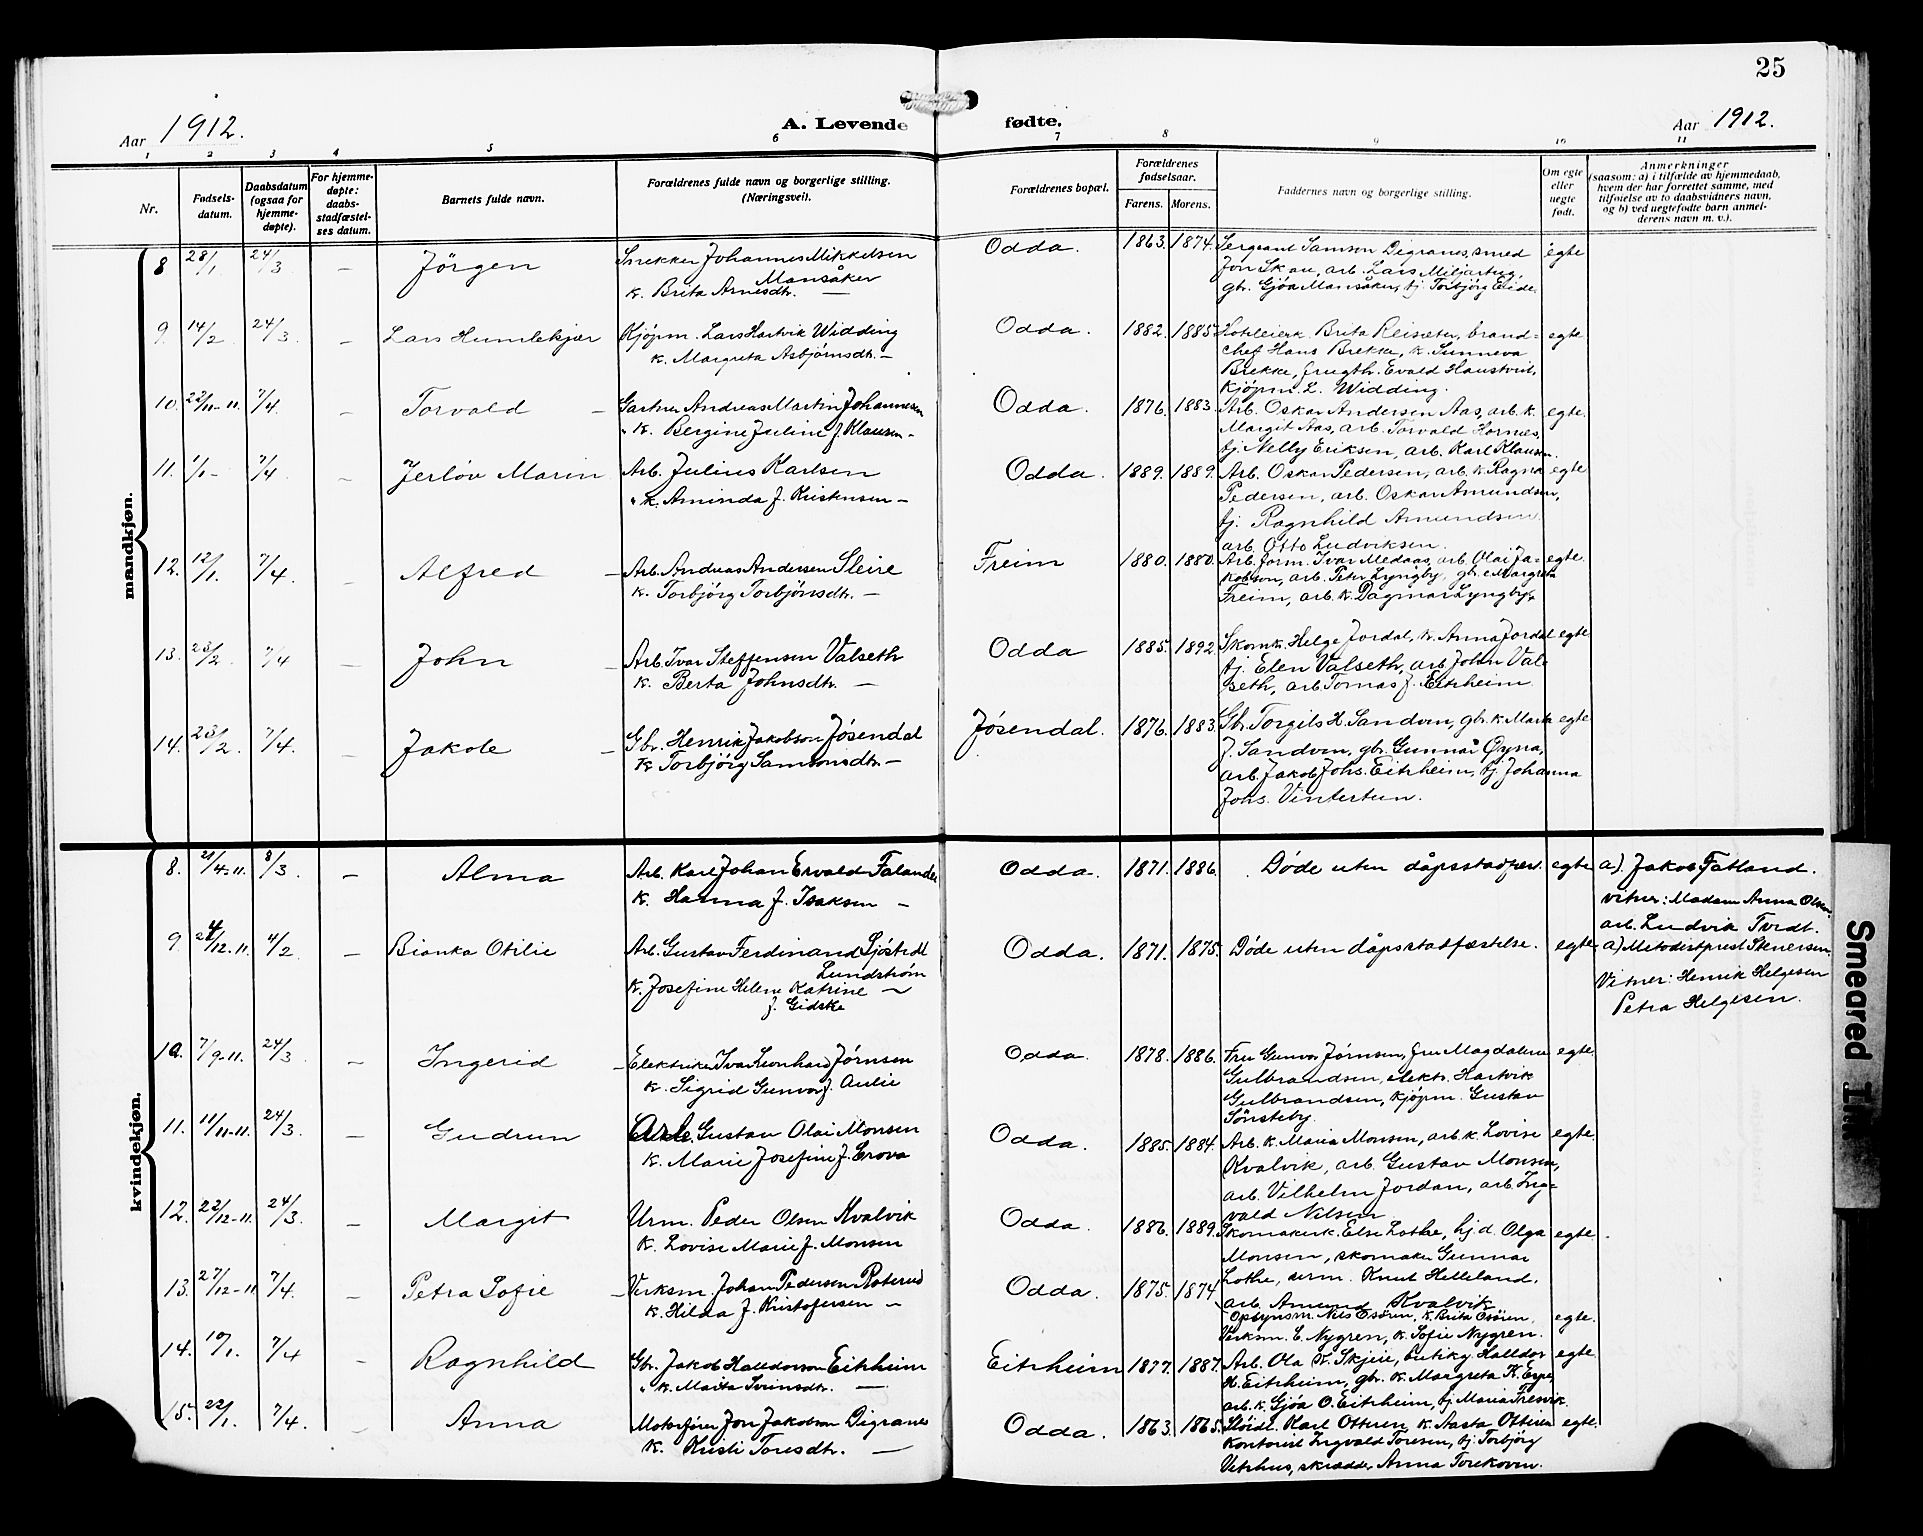 25
Aar 1912.
A. Levende fødte.
Aar 1912.
1 2 3 4 5 6 7 8 9 10 11
Nr.
Fødsels-
datum.
Daabsdatum
(ogsaa for
hjemme-
døpte).
For hjemme-
døpte:
daabs-
stadfæstel-
ses datum.
Barnets fulde navn.
Forældrenes fulde navn og borgerlige stilling.
(Næringsvei).
Forældrenes bopæl.
Forældrenes
fødselsaar.
Farens. Morens.
Faddernes navn og borgerlige stilling.
Om egte
eller
uegte
født.
Anmerkninger
(saasom: a) i tilfælde av hjemmedaab,
hvem der har forrettet samme, med
tilføielse av to daabsvidners navn,
og b) ved uegtefødte barn anmel-
derens navn m. v.).
mandkjøn.
8 28/1 24/3 – Jörgen
Snekker Johannes Mikkelsen
Mansåker
k. Brita Arnesdtr. –
Odda. 1863. 1874.
Sergeant Samson Digranes, smed
Jon Skau, arb. Lars
gbr. Gjöa Mansåker, tj. Torbjörg Eide.
egte
9. 14/2 24/3. – Lars Humlekjær
Kjøpm. Lars Hartvik Widding
k. Margreta Asbjørnsdtr. –
Odda. 1882. 1885.
Hoteleierk. Brita Reisæter, brand-
chef Hans Brekke, k. Sunneva
Brekke, frugth. Evald Haustveit,
Kjöpm. L. Widding.
egte
10. 22/11-11. 7/4. – Torvald –
Gartner Andreas Martin Johannesen
" k. Bergine Juline f. Klausen –
Odda. 1876. 1883.
Arb. Oskar Andersen Aas, arb. k.
Margit Aas, arb. Torvald Hornæs,
tj. Nelly Eriksen, arb. Karl Klausen.
egte.
11. 1/1 – 7/4. – Jerlöv Marin
Arb. Julius Karlsen
" k. Aminda f. Kristensen –
Odda. 1889. 1889.
Arb. Oskar Pedersen, arb. k. Ragna
Pedersen, arb. Oskar Amundsen,
tj. Ragnhild Amundsen
arb. Otto Ludviksen.
egte
12. 12/1. 7/4. – Alfred –
Arb. Andreas Andersen Sleire
k. Torbjörg Torbjörnsdtr. –
Freim 1880. 1880.
Arb. form. Ivar Medaas, arb. Olai Ja-
kobsen, arb. Peter Lyngby, gbr. Margreta
Freim, arb. k. Dagmar Lyngby.
egte.
13. 23/2. 7/4 – John –
Arb. Ivar Steffensen Valseth
k. Berta Johnsdtr. –
Odda 1885. 1892.
Skomk. Helge Jordal, k. Anna Jordal
tj. Elen Valseth, arb. John Val-
seth, arb. Tomas J. Eitrheim.
egte
14. 23/2. 7/4. – Jakob –
Gbr. Henrik Jakobson Jösendal
k. Torbjörg Samsonsdtr. –
Jösendal. 1876. 1883.
Gbr. Torgils H. Sandven, gbr. k. Marta
J. Sandven, gbr. Gunnar Øyna,
arb. Jakob Johs. Eitrheim, tj. Johanna
Johs. Vintertun.
egte
kvindekjøn.
8. 21/4-11. 8/3. – Alma
Arb. Karl Johan Ervald Falander
k. Hanna f. Isaksen –
Odda. 1871. 1886.
Døde uten dåpsstadfæst.
egte
a) Jakob Fatland.
vitner: Madam Anna Olsen.
arb. Ludvik Tvedt.
9. 24/12-11. 4/2 – Bianka Otilie
Arb. Gustav Ferdinand Sjöstedt
Lundström
k. Josefine Helene Katrine –
f. Gidske
Odda. 1871. 1875.
Døde uten dåpsstadfæstelse.
egte
a) Metodistprest Stenersen
Vitner: Henrik Helgesen
Petra Helgesen.
10. 7/9-11. 24/3 – Ingerid –
Elektriker Ivar Leonhard Jörnsen
k. Sigrid Gunvor f. Aulie
Odda. 1878. 1886.
Fru Gunvor Jörnsen, fru Magdalene
Gulbrandsen, elektr. Hartvik
Gulbrandsen, kjöpm. Gustav
Sönsteby.
egte.
11. 11/11-11. 24/3. – Gudrun
Arb. Gustav Olai Monsen
k. Marie Josefine f. Grova
Odda. 1885. 1884.
Arb. k. Maria Monsen, arb. k. Lovise
Kvalvik, arb. Gustav Monsen,
arb. Vilhelm Jordan, arb. Ing-
vald Nilsen.
egte.
12. 22/12-11. 24/3. – Margit
Urm. Peder Olsen Kvalvik
k. Lovise Marie f. Monsen
Odda. 1886. 1889.
Skomakerk. Else Lothe, hj.d. Olga
Monsen, skomaker Gunnar
Lothe, urm. Knut Helleland,
arb. Amund Kvalvik
egte.
13. 27/12-11 7/4. – Petra Sofie –
Verksm. Johan Pedersen Roterud
k. Hilda f. Kristofersen –
Odda. 1875. 1874
Opsynsm. Nils Osören, k. Brita Osören,
Verksm. C. Nygren, k. Sofie Nygren.
egte.
14. 10/1. 7/4 – Ragnhild
Gbr. Jakob Halldorson Eitrheim
" k. Marta Sveinsdtr. –
Eitrheim 1877. 1887.
Arb. Ola V. Skjeie, butiky. Halldor
H. Eitrheim, gbr. k. Margreta K. Espe,
arb. k. Gjöa O. Eitrheim, tj. Maria Tresvik.
egte
15. 22/1. 7/4. – Anna
Motorfører Jon Jakobson Digranes
k. Kristi Toresdtr. –
Odda. 1863. 1865.
Karl Ottesen, k. Aasta Ottesen
kontorist Ingvald Toresen, tj. Torbjörg
Vetrhus, skrædder Anna
egte.
Smeared Ink